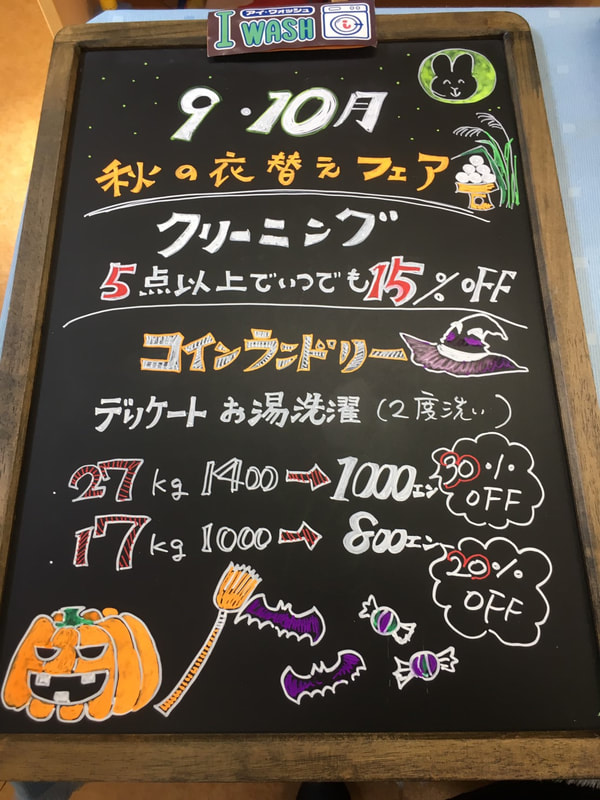 アイ・ウォッシュ
I WASH
9・10月
秋の衣替えフェア
クリーニング
5点以上でいつでも15%OFF
コインランドリー
デリケート お湯洗濯(2度洗い)
27kg 1400→1000エン 30%OFF
17kg 1000→800エン 20%OFF